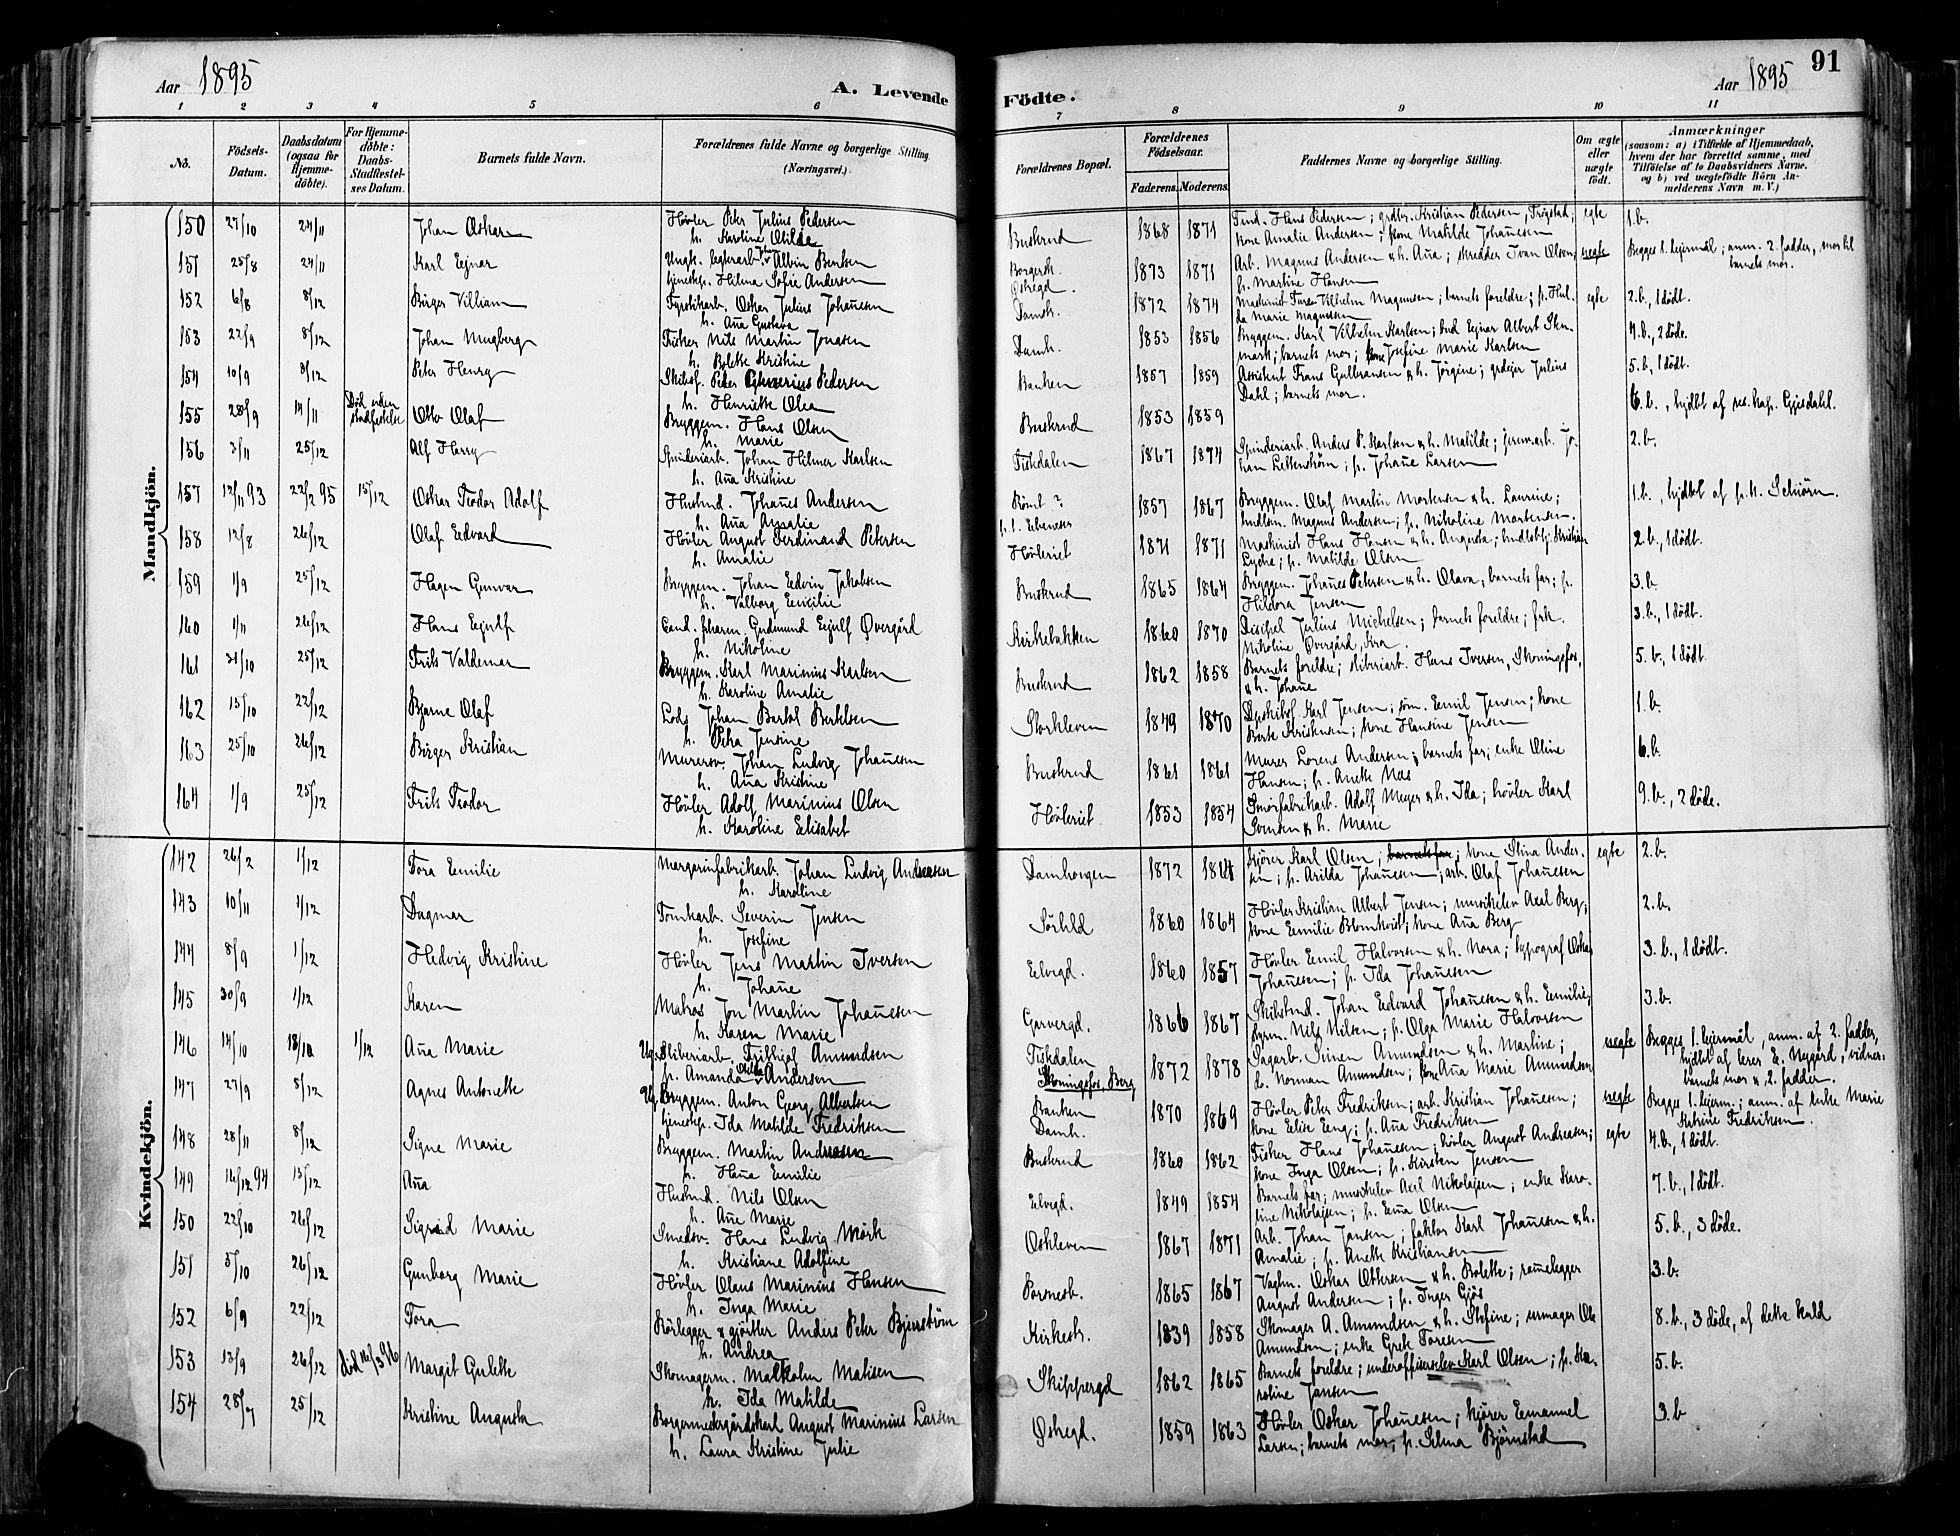 Aar 1895
A. Levende
Födte.
Aar 1895
91
1 2 3 4 5 6 7 8 9 10 11
No.
Födsels-Datum.
Daabsdatum (ogsaa for Hjemmedöbte).
For Hjemmedöbte: Daabs-Stadfestelses Datum.
Barnets fulde Navn.
Forældrenes fulde Navne og borgerlige Stilling. (Næringsvei.)
Forældrenes Bopæl.
Forældrenes Födselsaar.
Faderens. Moderens.
Faddernes Navne og borgerlige Stilling.
Om ægte eller uægte födt.
Anmærkninger
(saasom: a) i Tilfælde af Hjemmedaab, hvem der har forrettet samme, med Tilföielse af to Daabsvidners Navne. og b) ved uægtefödte Börn Anmelderens Navn m. V.)
Mandkjön.
150 27/10 24/11 Johan Oskar Hövler Peter Julius Pedersen
h. Karoline Otilde Buskrud 1868 1871 Hans Pedersen; grdbr. Kristian Pedersen, Trögstad; egte 1.b.
kone Amalie Andersen; kone Matilde Johannesen
151 25/8 24/11 Karl Ejnar Ungk. Albin Berntsen
tjenestep. Hilma Sofie Andersen Borgersk. Östregd. 1873 1871 Arb. Magnus Andersen & h. Anna; skredder Ivan Olsen; uegte Begges 1. leiermål; anm. 2. fadder, mor til
p. Martine Hansen barnets mor.
152 6/8 8/12 Birger Villiam Fyrstikarb. Oskar Julius Johannesen
h. Anna Gustava Damh. 1872 1874 Maskinist Ture Vilhelm Magnussen; barnets foreldre; p. Hul-
da Marie Magnussen egte 2.b., 1 dödt.
153 22/9 8/12 Johan Mugberg Fisker Nils Martin Jonasen
h. Bolette Kristine Damh. 1853 1856 Bryggem. Karl Vilhelm Karlsen; bud Ejnar Albert Sten-
mark; barnets mor; kone Josefine Marie Karlsen 4.b., 2 döde.
154 10/9 8/12 Peter Henry Skibsf. Peter Pedersen
h. Henriette Olea Banken 1857 1859 Assistent Frans Gulbransen & h. Jörgine; Julius
Dahl; barnets mor. 5.b, 1 dödt.
155 28/9 14/11 Död uden stadfestelse Otto Olaf Bryggem. Hans Olsen
h. Marie Buskrud 1853 1859 6.b., hjdbt af res. kap. Gjisdahl.
156 3/11 25/12 Alf Harry Spinderiarb. Johan Hilmer Karlsen
h. Anna Kristine Fiskdalen 1867 1874 Spinderiarb. Anders P. Karlsen & h. Matilde; jernarb. Jo-
han Lettenström; p. Johanne Larsen 2.b.
157 12/11 93 22/2 95 15/12 Oskar Teodor Adolf Husmd. Johannes Andersen
h. Anna Amalie Römt? p.t. Ebeneser 1857 1867 Bryggem. Olaf Martin Mortensen & h. Laurine;
hndlsm. Magnus Andersen; p. Nikoline Mortensen. 1.b., hjdbt af p.k. Schiörn.
158 12/8 26/12 Olaf Edvard Hövler August Ferdinand Petersen
h. Amalie Hövleriet 1871 1871 Maskinist Hans Hansen & h. Augusta; Kristian
Lyche; p. Matilde Olsen 2.b., 1 dödt.
159 1/9 25/12 Hagen Gunvar Bryggem. Johan Edvin Jakobsen
h. Valborg Emilie Buskrud 1865 1864 Bryggem. Johannes Petersen & h. Olava; barnets far; p.
Hildora Jensen 3.b.
160 1/11 26/12 Hans Ejulf Cand. pharm. Gudmund Ejulf Övergård
h. Nikoline Kirkebakken 1860 1870 Discipel Julius Michelsen; barnets foreldre; frk.
Nikoline Övergård, 3.b., 1 dödt.
161 31/10 25/12 Frits Valdemar Bryggem. Karl Marinius Karlsen
h. Karoline Amalie Buskrud 1862 1858 Barnets foreldre; sliberiarb. Hans Iversen, Skoningsfos,
& h. Johanne 5.b., 1 dödt.
162 15/10 22/12 Bjarne Olaf Lods Johan Bartol Bertelsen
h. Petra Jensine Storkleven 1849 1870 Dpskibsf. Karl Jensen; söm. Emil Jensen; kone
Berte Kristensen; kone Hansine Jensen 1.b.
163 25/10 26/12 Birger Kristian Murersv. Johan Ludvig Johannesen
h. Anna Kristine Buskrud 1861 1861 Murer Lorens Andersen; barnets far; enke Oline
Hansen; p. Anette Næs 6.b.
164 1/9 25/12 Frits Teodor Hövler Adolf Marinius Olsen
h. Karoline Elisabet Hövleriet 1853 1854 Smörfabrikarb. Adolf Meyer & h. Ida; hövler Karl
& h. Marie 9.b., 2 döde.
Kvindekjön.
142 26/2 1/12 Tora Emilie Margarinfabrikarb. Johan Ludvig Andreasen
h. Karoline Damborgen 1872 Kjörer Karl Olsen; barnets far; kone Stina Ander-
sen; p. Arilda Johannesen; arb. Olaf Johannesen egte 2.b.
143 10/11 1/12 Dagmar Tomtearb. Severin Jensen
h. Josefine Sörhld 1860 1864 Hövler Kristian Albert Jensen; musikelev Axel Berg;
kone Emilie Blomkvist; kone Anna Berg 2.b.
144 8/9 1/12 Hedvig Kristine Hövler Jens Martin Iversen
h. Johanne Elvegd. 1860 1857 Hövler Emil Halvorsen & h. Nora; typograf Oskar
Johannesen; p. Ida Johannesen 3.b., 1 dödt.
145 30/9 1/12 Karen Matros Jon Martin Johannesen
h. Karen Marie Garvergd. 1866 1867 Skibstmd. Johan Edvard Johannesen & h. Emilie;
Nils Nilsen; p. Olga Marie Halvorsen 3.b.
146 14/10 18/10 1/12 Anna Marie Ug. Sliberiarb. Fritthjof Amundsen
p. Amanda Otilde Andersen Fiskdalen Skoningsfos, Berg 1872 1878 Dagarb. Simen Amundsen & h. Martine;
do. Norman Amundsen; kone Anna Marie Amundsen uegte Begges 1. leiermål, anm. af 2. fadder,
hjdbt af lerer E. Nygård, vidner:
barnets mor & 2. fadder.
147 27/9 8/12 Agnes Antonette Ug. Bryggem. Anton Georg Albertsen
tjenestep. Ida Matilde Fredriksen Banken Damh. 1870 1869 Hövler Peter Fredriksen; arb. Kristian Johannesen;
kone Elise Eng; p. Anna Fredriksen uegte Begges 1. leierm.; anm. af enke Marie
Katrine Fredriksen.
148 28/11 8/12 Signe Marie Bryggem. Martin Andreasen
h. Hanna Emilie Buskrud 1860 1862 Fisker Hans Johannesen; hövler August Andreasen;
kone Inga Olsen; p. Kirsten Jensen egte 4.b., 1 dödt.
149 16/12 94 15/12 Anna Husmd. Nils Olsen
h. Anne Marie Elvegd. 1849 1854 Barnets far; musikelev Axel Nikolajsen; enke Karo-
line Nikolajsen; p. Emma Olsen 7.b., 1 dödt.
150 22/10 26/12 Sigrid Marie Smedsv. Hans Ludvig Mörk
h. Kristiane Adolfine Oskleven 1867 1871 Arb. Johan Jansen; faktor Karl Johannesen & h.
Amalie; p. Anette Kristiansen 5.b., 3 döde.
151 5/10 26/12 Gunborg Marie Hövler Olaus Marinius Hansen
h. Inga Marie Pornesb. 1865 1867 Vagtm. Oskar Ottersen & h. Bolette; ramelegger
August Andersen; p. Inger Gjös 3.b.
152 6/9 22/12 Tora Rörlegger & gjörtler Anders Peter Bjernström
h. Andrea Kirkestr. 1839 1858 Skomager A. Amundsen & h. Stefine; urmager Ole
Amundsen; enke Grete Toresen 8.b., 3 döde, af dette kuld
153 13/9 26/12 Död 16/3 96 Margit Gulette Skomagerm. Malkolm Matisen
h. Ida Matilde Skippergd 1862 1865 Barnets foreldre; underoffiserselev Karl Olsen; p. Ka-
roline Jansen 5.b.
154 28/7 25/12 Kristine Augusta Borgermestergårdskarl August Marinius Larsen
h. Laura Kristine Julie Östregd. 1859 1863 Hövler Oskar Johannesen; kjörer Emanuel
Larsen; barnets mor; p. Selma Björnstad 3.b